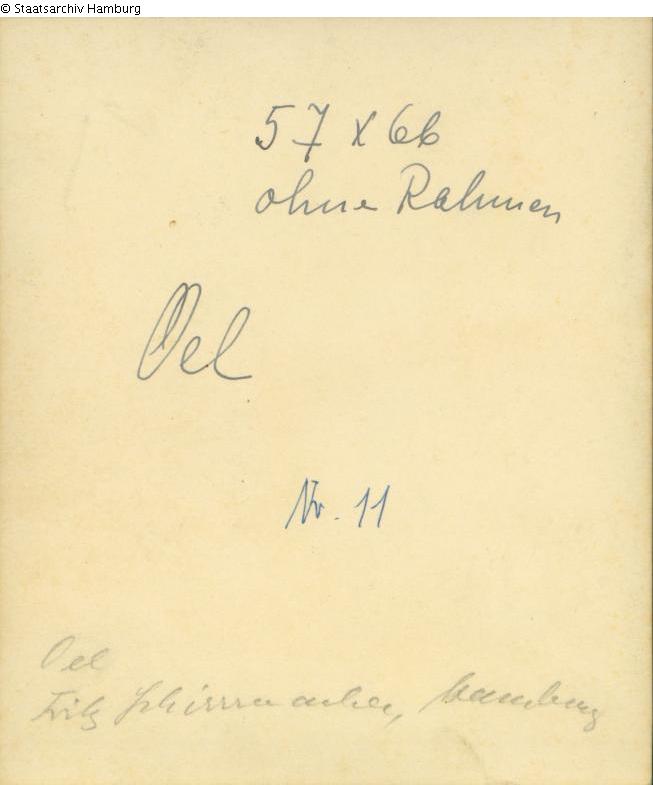 © Staatsarchiv Hamburg
57 x 66
ohne Rahmen
Oel
Nr. 11
Oel
Fritz Schirrmacher, Hamburg